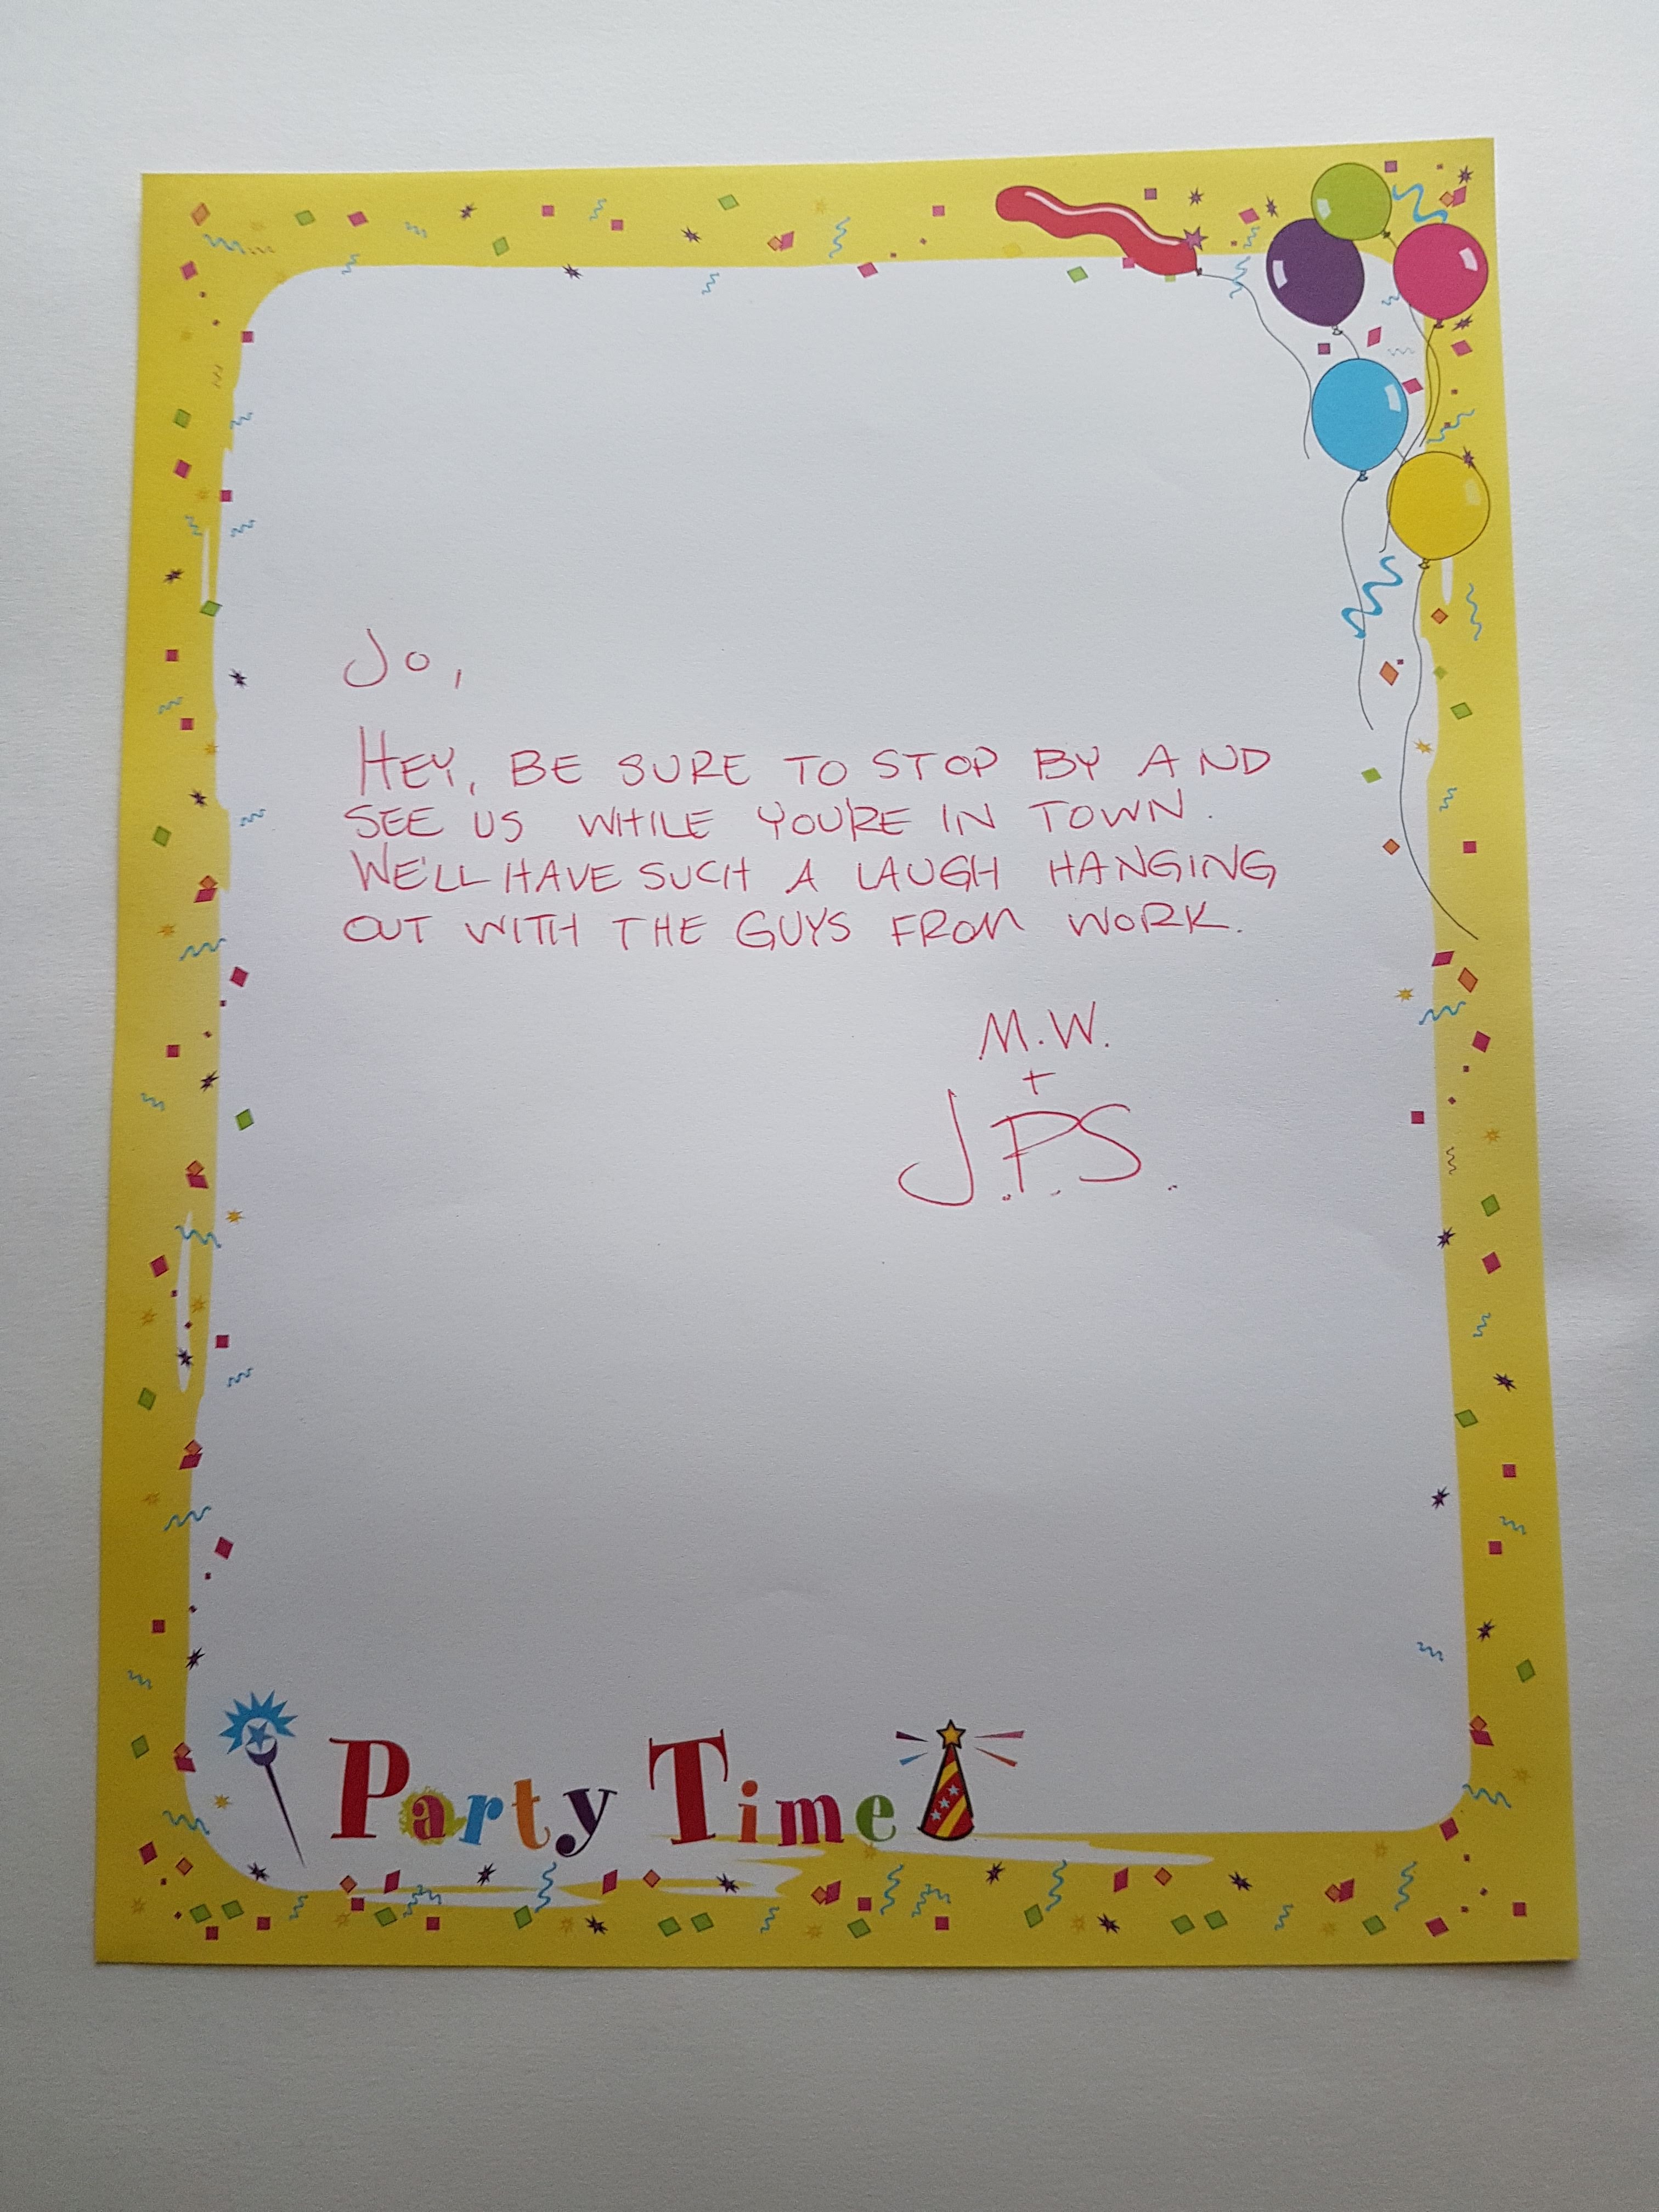 Jo,
HEY, BE SURE TO STOP BY AND
SEE US WHILE YOU'RE IN TOWN.
WE'LL HAVE SUCH A LAUGH HANGING
OUT WITH THE GUYS FROM WORK.
M.W.
+
J.P.S.
Party Time